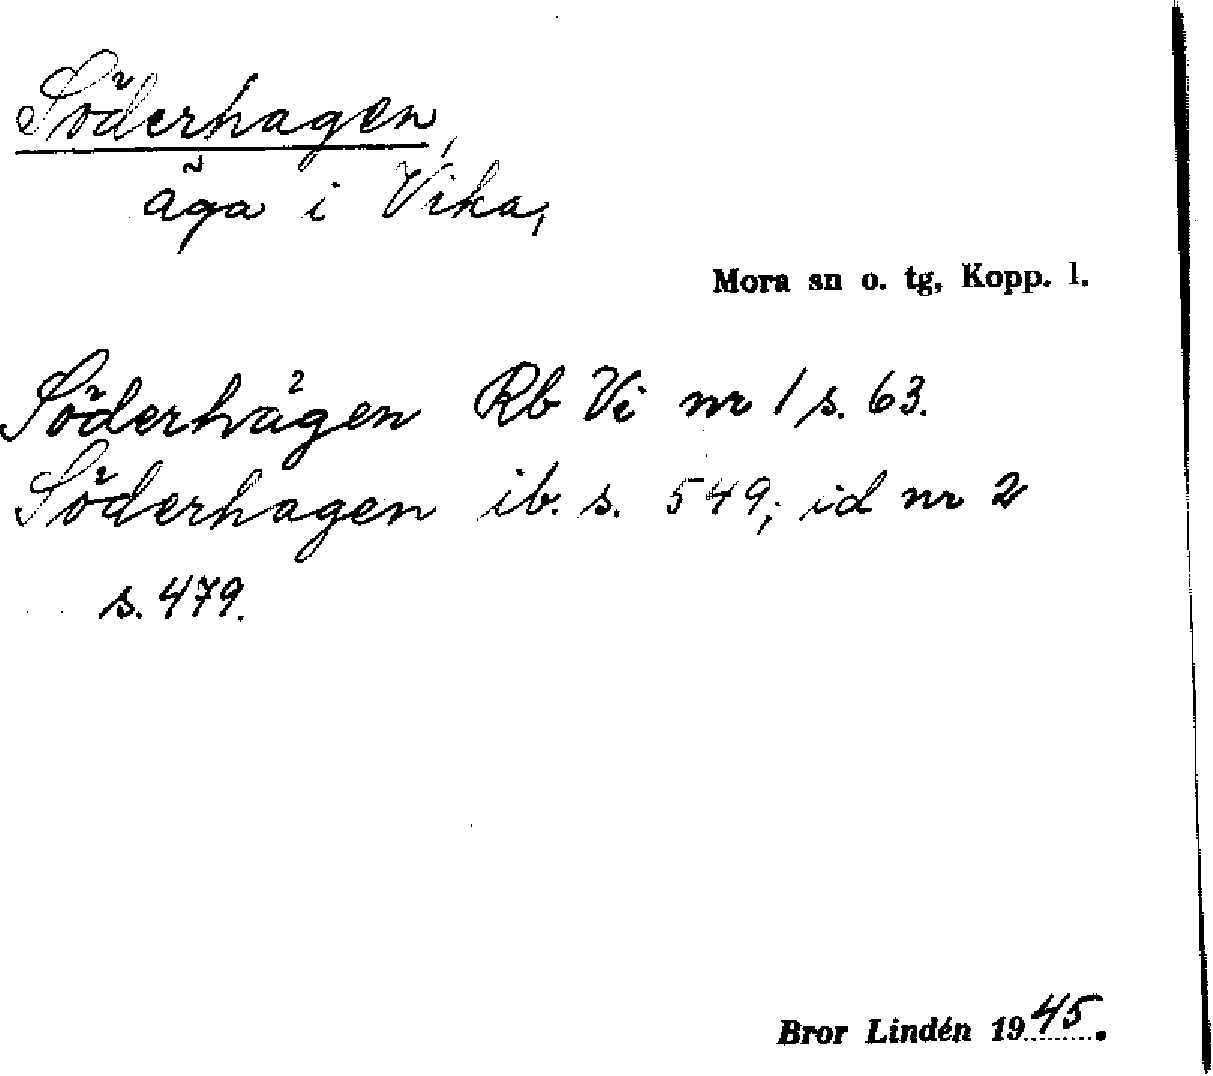 Söderhagen,
äga i Vika,
Mora sn o. tg, Kopp. l.
Söderhågen Rb Vi nr 1 s. 63.
Söderhagen ib. s. 549; id nr 2
s. 479.
Bror Lindén 1945.